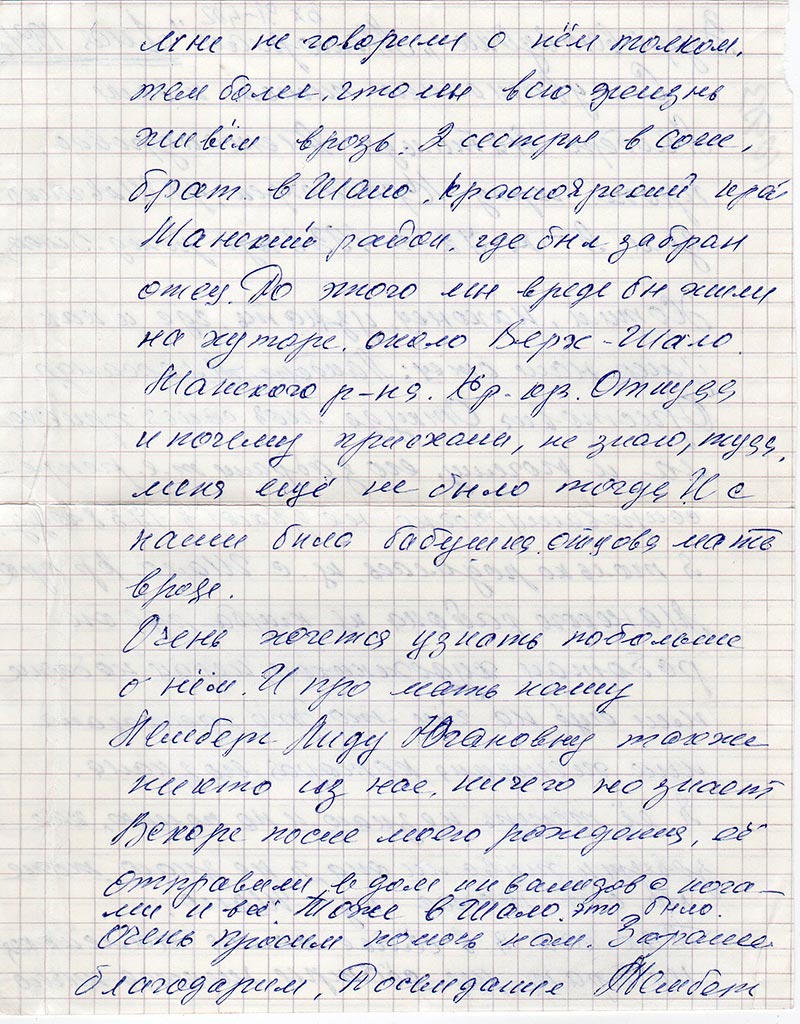 мне не говорили о нём толком.
тем более, что мы всю жизнь
живём врозь. 2 сестры в Сочи,
брат в Шало, Красноярский кра
Манский район, где был забран
отец. До этого мы вроде бы жили
на хуторе, около Верх-Шало
Манского р-на. Кр-кр. Откуда
и почему приехали, не знаю, туда,
меня ещё не было тогда. И с
нами была бабушка, отцова мать
вроде.
Очень хочется узнать побольше
о нём. И про мать нашу
Лиду Югановну также
никто из нас, ничего не знает
Вскоре после моего рождения, её
отправили в дом инвалидов с нога-
ми и всё. Тоже в Шало это было.
Очень просим помочь нам. Заранее
благодарим,